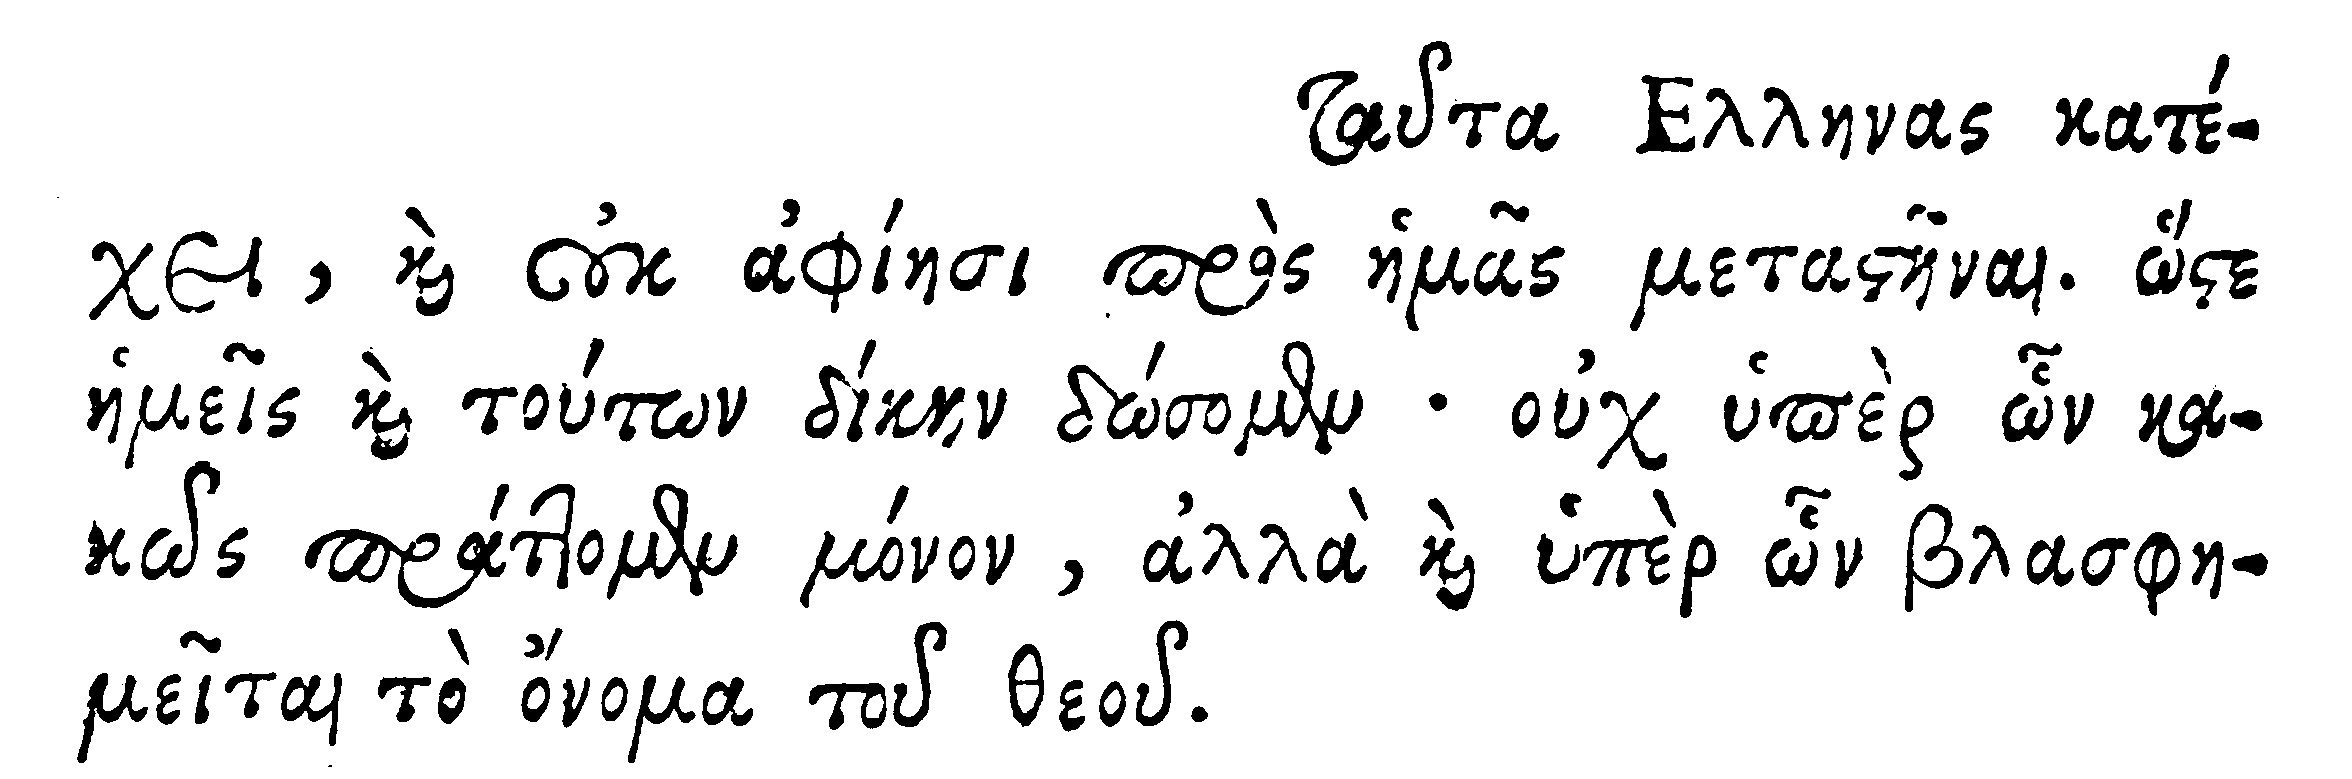 ταῦτα Ἕλληνας κατέ-
χει, καὶ οὐκ ἀφίησι πρὸς ἡμᾶς μεταστῆναι. ὥστε
ἡμεῖς καὶ τούτων δίκην δώσομεν· οὐχ ὑπὲρ ὧν κα-
κῶς πράττομεν μόνον, ἀλλὰ καὶ ὑπὲρ ὧν βλασφη-
μεῖται τὸ ὄνομα τοῦ θεοῦ.